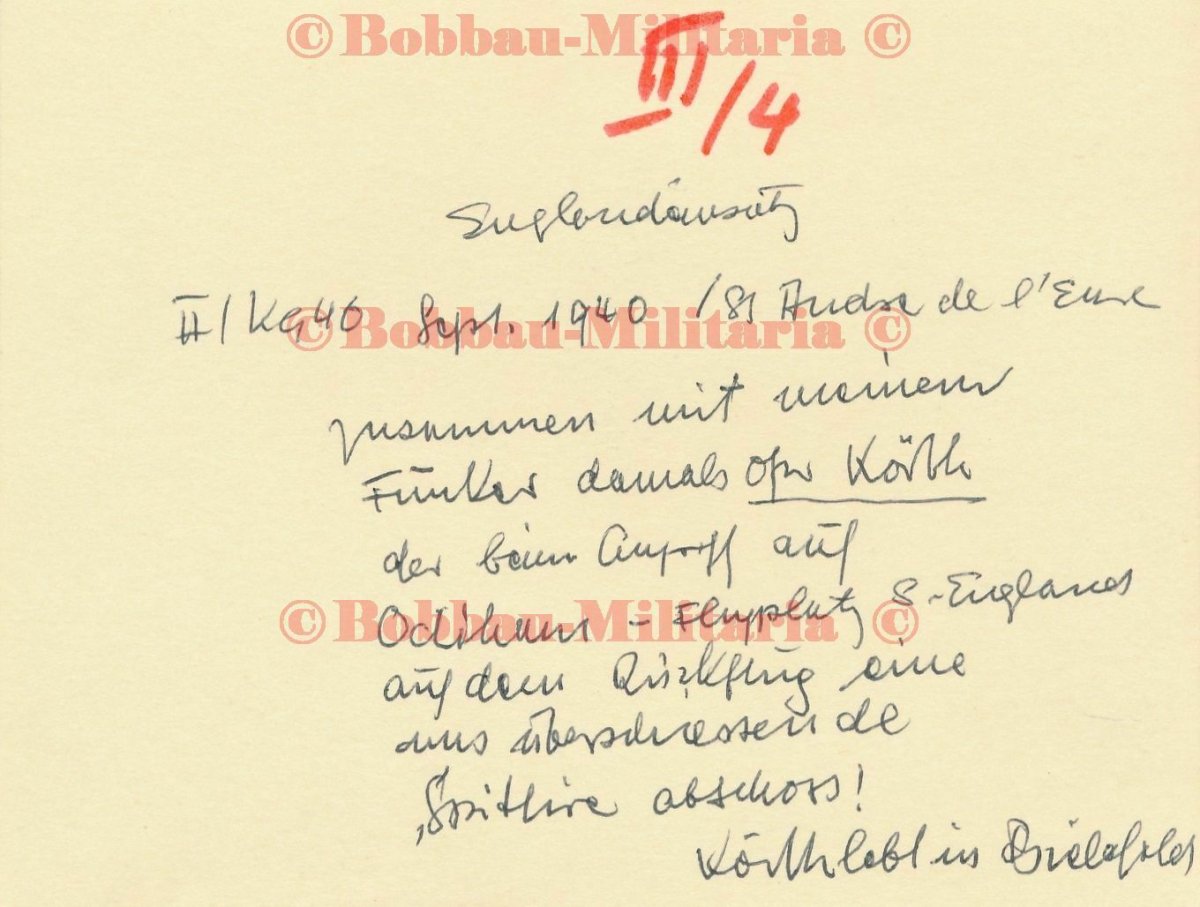 © Bobbau-Militaria ©
III/4
Englandeinsatz
II/KG40 Sept. 1940 / St Andre de l'Eure
© Bobbau-Militaria ©
zusammen mit meinem
Funker damals Ofw
der beim Angriff auf
Odiham - Flugplatz S-England
© Bobbau-Militaria ©
auf dem Rückflug eine
uns überschiessende
"Spitfire abschoss!
lebt in Bielefeld